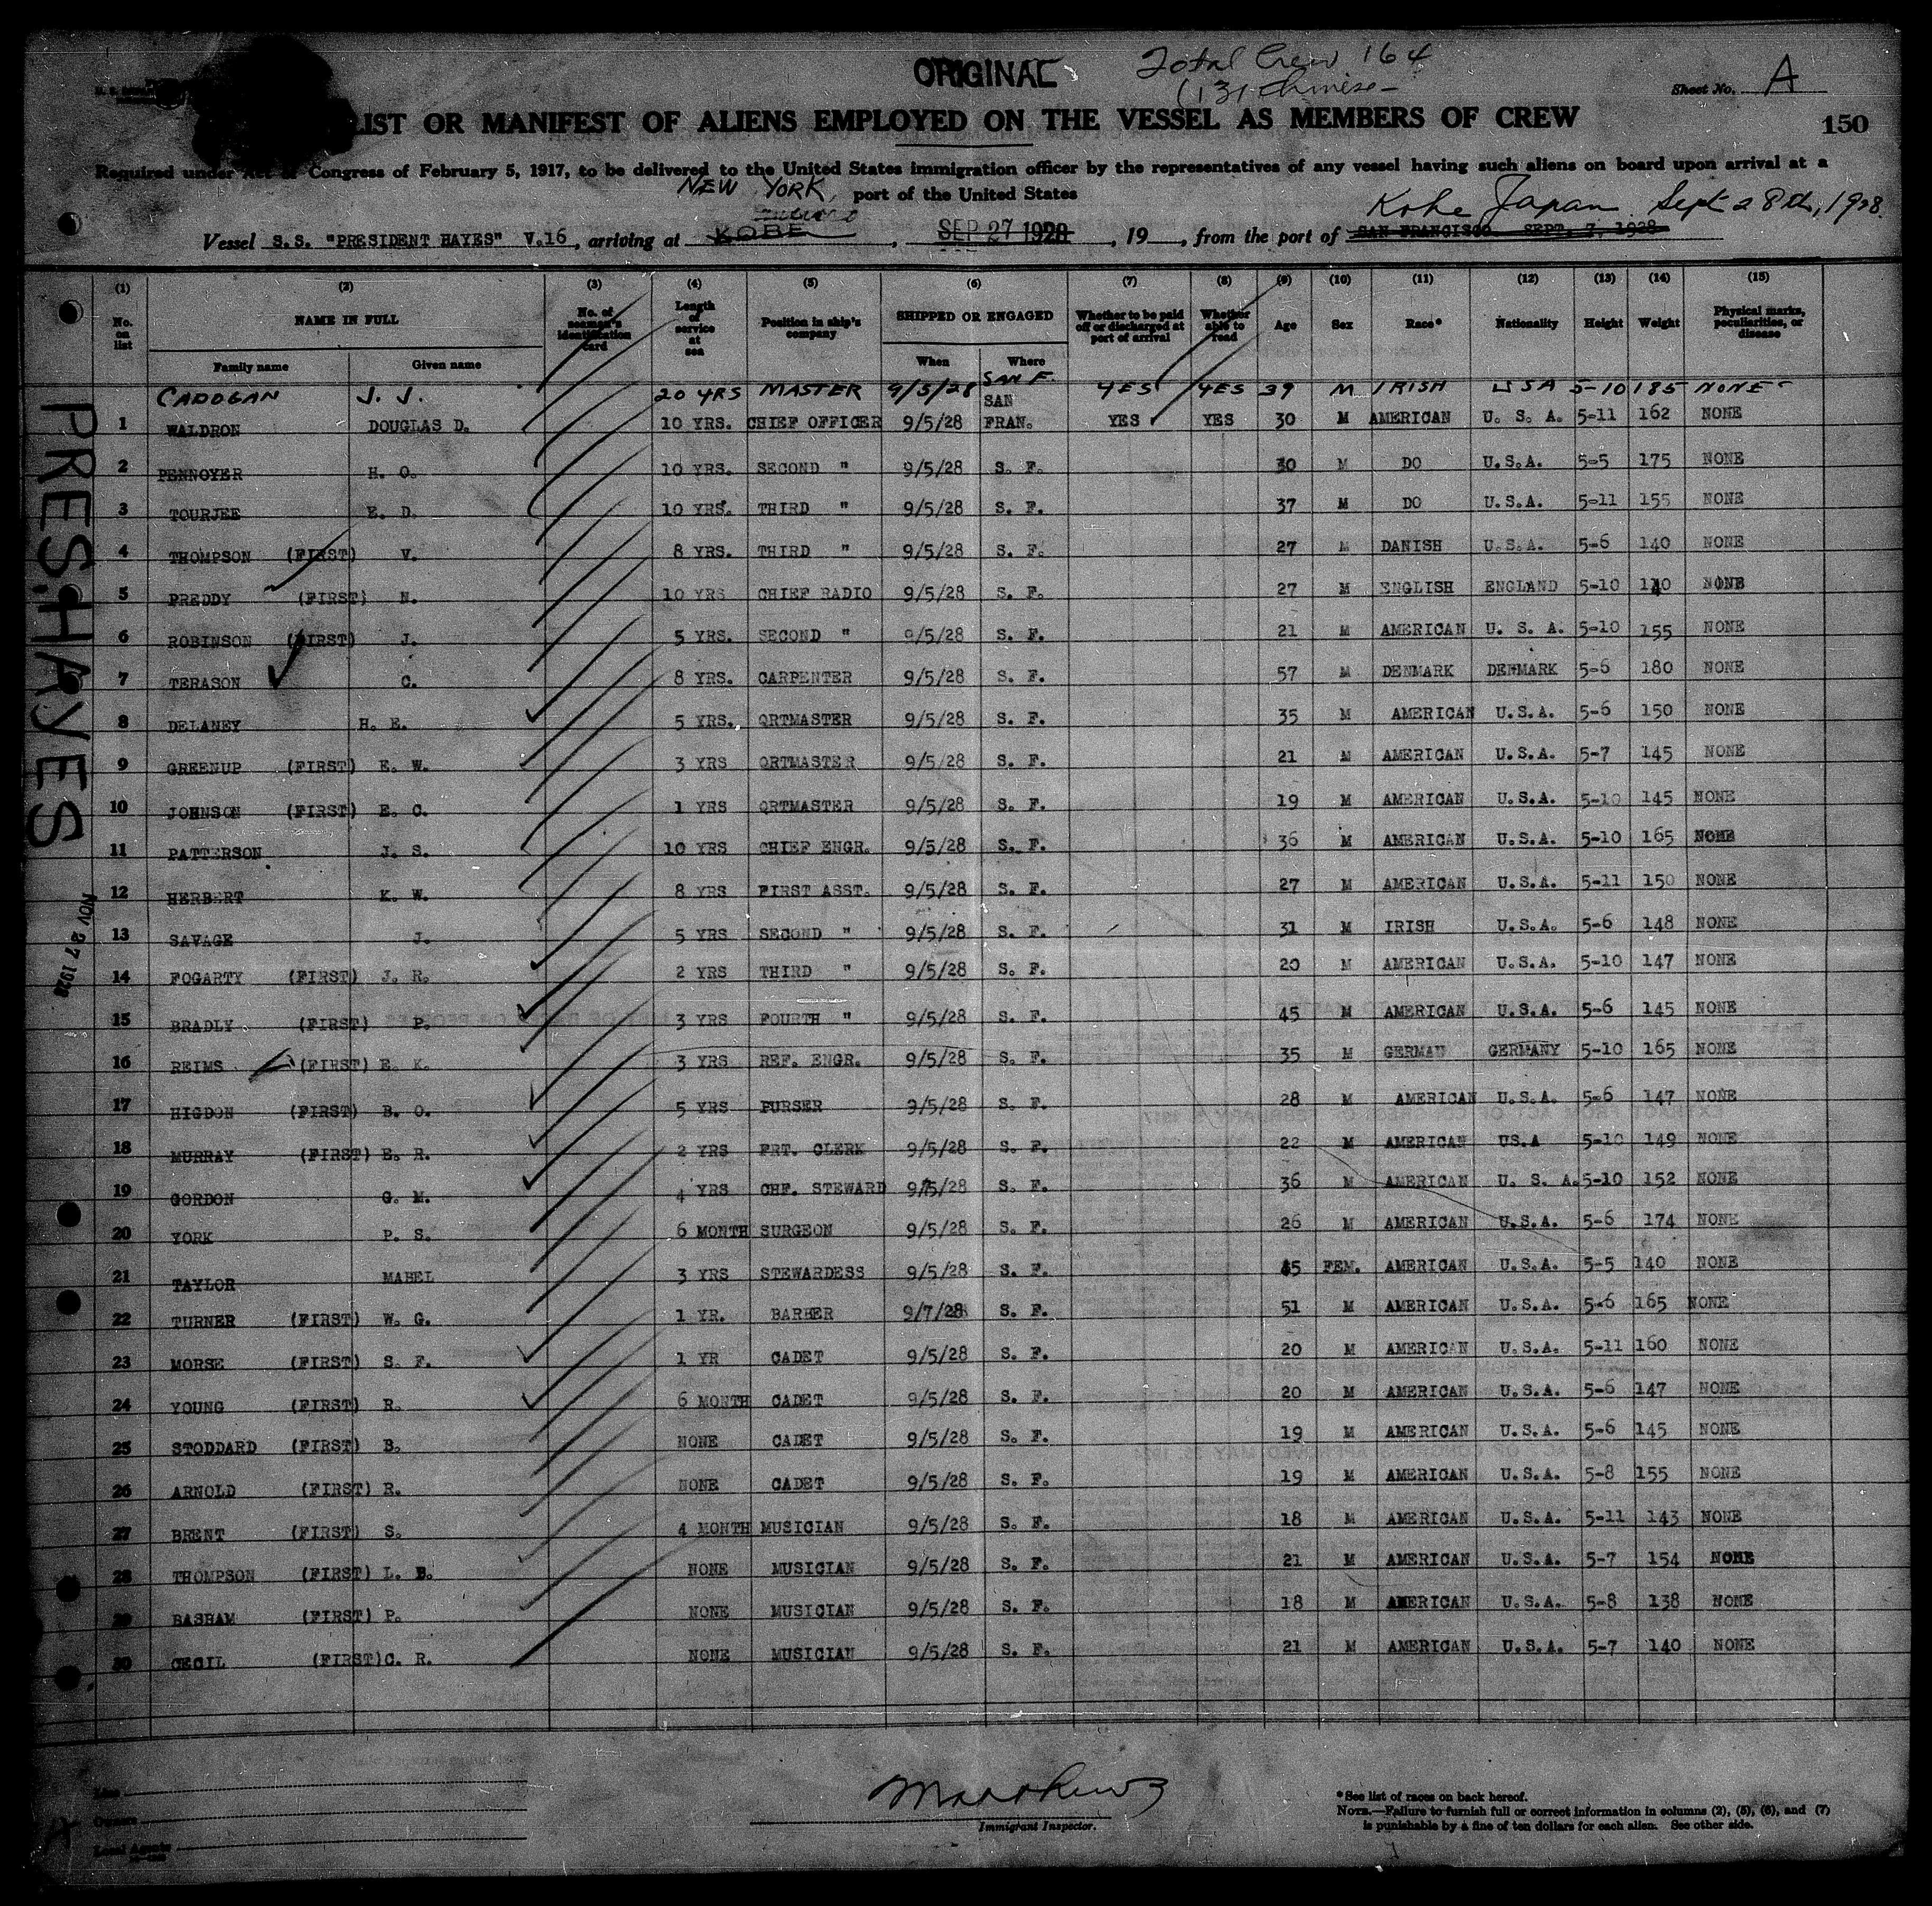 ORIGINAL
Total Crew 164
(131 Chinese-
Sheet No. A
LIST OR MANIFEST OF ALIENS EMPLOYED ON THE VESSEL AS MEMBERS OF CREW
150
Required under Act of Congress of February 5, 1917, to be delivered to the United States immigration officer by the representatives of any vessel having such aliens on board upon arrival at a
NEW YORK, port of the United States
Kobe Japan Sept 28th, 1928.
Vessel S.S. "PRESIDENT HAYES" V.16, arriving at KOBE, SEP 27 1928, 19__, from the port of SAN FRANCISCO. SEPT. 7, 1928
(1) (2) (3) (4) (5) (6) (7) (8) (9) (10) (11) (12) (13) (14) (15)
No. on list NAME IN FULL No. of seaman's identification card Length of service at sea Position in ship's company SHIPPED OR ENGAGED Whether to be paid off or discharged at port of arrival Whether able to read Age Sex Race* Nationality Height Weight Physical marks, peculiarities, or disease
Family name Given name When Where
CADOGAN J. J. 20 YRS MASTER 9/5/28 SAN F. YES YES 39 M IRISH USA 5-10 185 NONE-
1 WALDRON DOUGLAS D. 10 YRS. CHIEF OFFICER 9/5/28 SAN FRAN. YES YES 30 M AMERICAN U. S. A. 5-11 162 NONE
2 PENNOYER H. O. 10 YRS. SECOND " 9/5/28 S. F. 30 M DO U.S.A. 5-5 175 NONE
3 TOURJEE E. D. 10 YRS. THIRD " 9/5/28 S. F. 37 M DO U.S.A. 5-11 155 NONE
4 THOMPSON (FIRST) V. 8 YRS. THIRD " 9/5/28 S. F. 27 M DANISH U.S.A. 5-6 140 NONE
5 PREDDY (FIRST) N. 10 YRS CHIEF RADIO 9/5/28 S. F. 27 M ENGLISH ENGLAND 5-10 140 NONE
6 ROBINSON (FIRST) J. 5 YRS. SECOND " 9/5/28 S. F. 21 M AMERICAN U. S. A. 5-10 155 NONE
7 TERASON C. 8 YRS. CARPENTER 9/5/28 S. F. 57 M DENMARK DENMARK 5-6 180 NONE
8 DELANEY H. E. 5 YRS. QRTMASTER 9/5/28 S. F. 35 M AMERICAN U.S.A. 5-6 150 NONE
9 GREENUP (FIRST) E. W. 3 YRS QRTMASTER 9/5/28 S. F. 21 M AMERICAN U.S.A. 5-7 145 NONE
10 JOHNSON (FIRST) E. C. 1 YRS QRTMASTER 9/5/28 S. F. 19 M AMERICAN U.S.A. 5-10 145 NONE
11 PATTERSON J. S. 10 YRS CHIEF ENGR. 9/5/28 S. F. 36 M AMERICAN U.S.A. 5-10 165 NONE
12 HERBERT K. W. 8 YRS FIRST ASST. 9/5/28 S. F. 27 M AMERICAN U.S.A. 5-11 150 NONE
13 SAVAGE J. 5 YRS SECOND " 9/5/28 S. F. 31 M IRISH U.S.A. 5-6 148 NONE
14 FOGARTY (FIRST) J. R. 2 YRS THIRD " 9/5/28 S. F. 20 M AMERICAN U.S.A. 5-10 147 NONE
15 BRADLY (FIRST) P. 3 YRS FOURTH " 9/5/28 S. F. 45 M AMERICAN U.S.A. 5-6 145 NONE
16 REIMS (FIRST) E. K. 3 YRS REF. ENGR. 9/5/28 S. F. 35 M GERMAN GERMANY 5-10 165 NONE
17 HIGDON (FIRST) B. O. 5 YRS PURSER 9/5/28 S. F. 28 M AMERICAN U.S.A. 5-6 147 NONE
18 MURRAY (FIRST) E. R. 2 YRS FRT. CLERK 9/5/28 S. F. 22 M AMERICAN US.A 5-10 149 NONE
19 GORDON G. M. 4 YRS CHF. STEWARD 9/5/28 S. F. 36 M AMERICAN U. S. A. 5-10 152 NONE
20 YORK P. S. 6 MONTH SURGEON 9/5/28 S. F. 26 M AMERICAN U.S.A. 5-6 174 NONE
21 TAYLOR MABEL 3 YRS STEWARDESS 9/5/28 S. F. 45 FEM. AMERICAN U.S.A. 5-5 140 NONE
22 TURNER (FIRST) W. G. 1 YR. BARBER 9/7/28 S. F. 51 M AMERICAN U.S.A. 5-6 165 NONE
23 MORSE (FIRST) S. F. 1 YR CADET 9/5/28 S. F. 20 M AMERICAN U.S.A. 5-11 160 NONE
24 YOUNG (FIRST) R. 6 MONTH CADET 9/5/28 S. F. 20 M AMERICAN U.S.A. 5-6 147 NONE
25 STODDARD (FIRST) B. NONE CADET 9/5/28 S. F. 19 M AMERICAN U.S.A. 5-6 145 NONE
26 ARNOLD (FIRST) R. NONE CADET 9/5/28 S. F. 19 M AMERICAN U.S.A. 5-8 155 NONE
27 BRENT (FIRST) S. 4 MONTH MUSICIAN 9/5/28 S. F. 18 M AMERICAN U.S.A. 5-11 143 NONE
28 THOMPSON (FIRST) L. B. NONE MUSICIAN 9/5/28 S. F. 21 M AMERICAN U.S.A. 5-7 154 NONE
29 BASHAM (FIRST) P. NONE MUSICIAN 9/5/28 S. F. 18 M AMERICAN U.S.A. 5-8 138 NONE
30 CECIL (FIRST) C. R. NONE MUSICIAN 9/5/28 S. F. 21 M AMERICAN U.S.A. 5-7 140 NONE
PRES. HAYES
NOV 27 1928
Line
Owners
Local Agents
Matthews
Immigrant Inspector.
*See list of races on back hereof.
NOTE.—Failure to furnish full or correct information in columns (2), (5), (6), and (7)
is punishable by a fine of ten dollars for each alien. See other side.